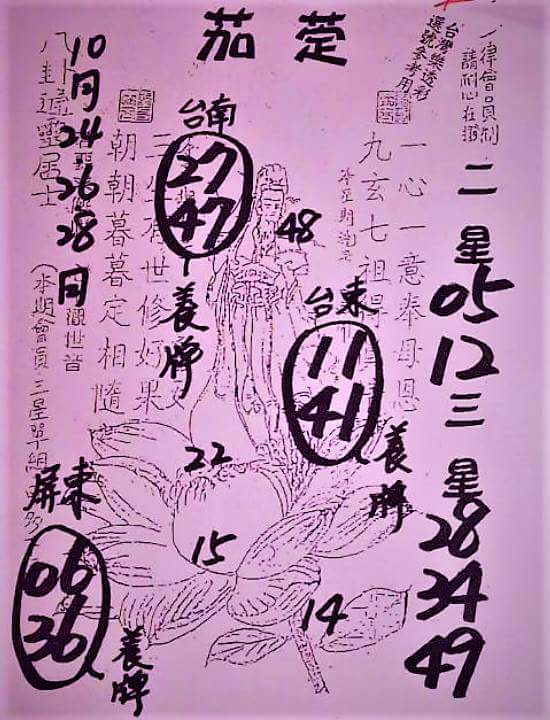 茄萣
一律會員制
請耐心在線
台灣樂透彩
選號參考用
二星
05
12
三星
28
34
49
一心一意奉母恩
九玄七祖得
台南
27
47
養牌
48
台東
11
41
養牌
世修好果
朝朝暮暮定相隨
觀世音
10月
24
26
28日
八卦
靈居士
(本期會員三星單組
22
15
14
屏東
06
36
養牌